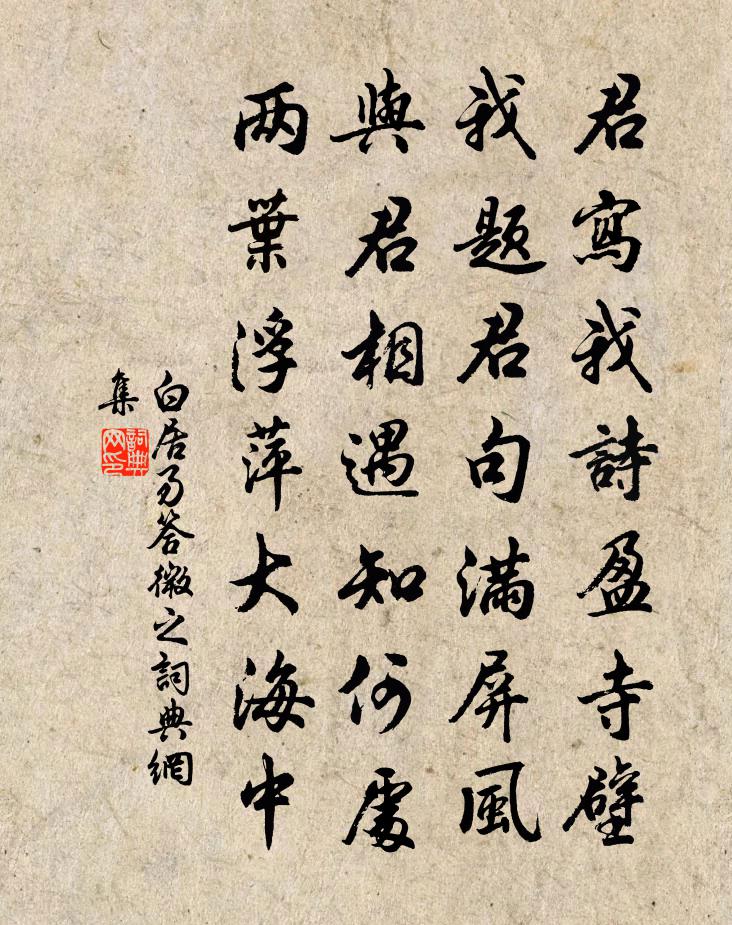 君寫我詩盈寺壁
我題君句滿屏風
與君相遇知何處
两葉浮萍大海中
白居易答微之詞典網
集
詞典
网印